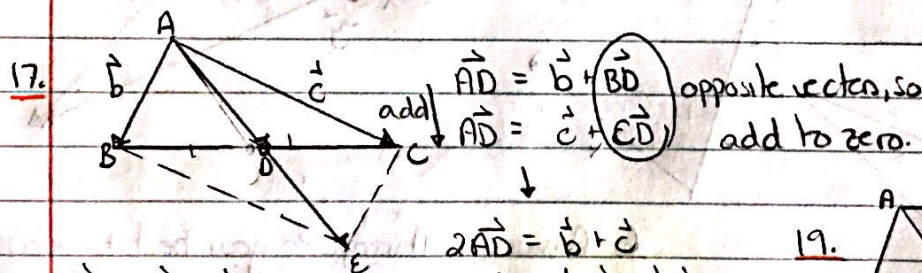 17.
A
b⃗
c⃗
B
D
C
E
add
A⃗D = b⃗ + B⃗D opposite vectors, so
A⃗D = c⃗ + C⃗D add to zero.
↓
2A⃗D = b⃗ + c⃗
19.
A